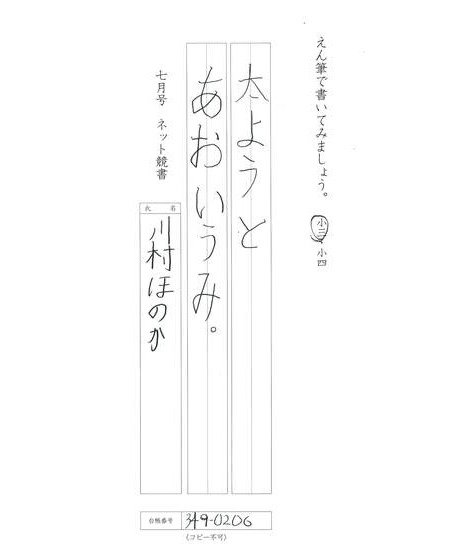 えん筆で書いてみましょう。 小三・小四
太ようと
あおいうみ。
七月号 ネット競書
氏名
川村ほのか
台帳番号 349-0206
(コピー不可)